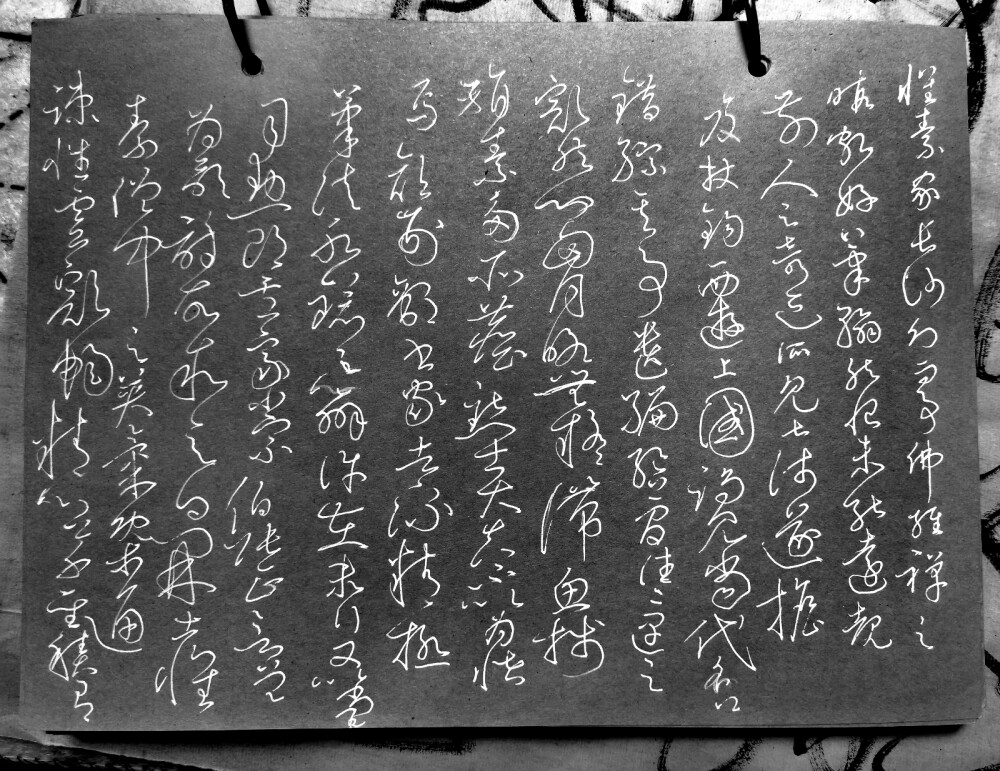 懷素家長沙幼而事佛經禪之
暇頗好筆翰然恨未能遠覩
前人之奇迹所見甚淺遂擔
笈杖錫西遊上國謁見當代名公
錯綜其事遺編絕簡往往遇之
豁然心胸略無疑滯魚牋
絹素多所塵點士大夫不以為怪
焉顏刑部書家者流精極
筆法水鏡之辯許在末行又以尚書
司勳郎盧象小宗伯張正言曾
為歌詩故敘之曰開士懷
素僧中之英氣概通
疎性靈豁暢精心草聖積有